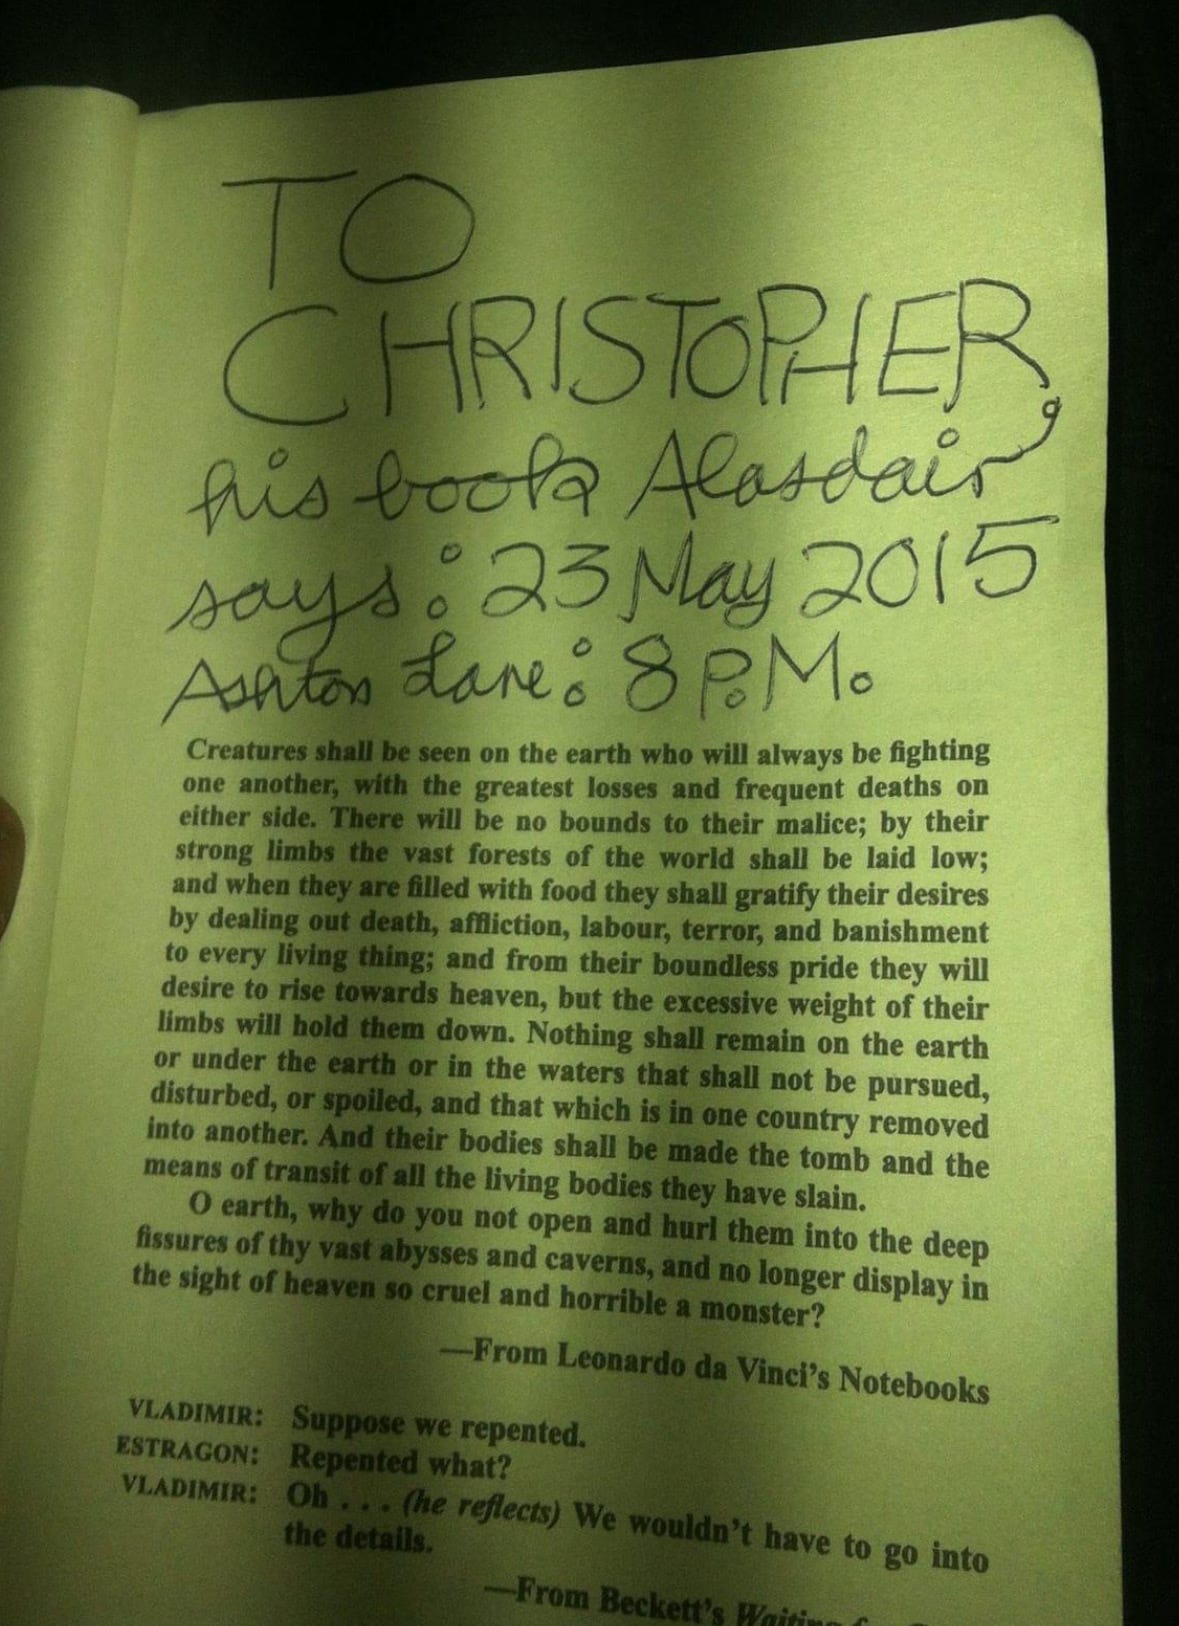 TO
CHRISTOPHER,
his book Alasdair
says: 23 May 2015
Ashton Lane: 8 P.M.
Creatures shall be seen on the earth who will always be fighting
one another, with the greatest losses and frequent deaths on
either side. There will be no bounds to their malice; by their
strong limbs the vast forests of the world shall be laid low;
and when they are filled with food they shall gratify their desires
by dealing out death, affliction, labour, terror, and banishment
to every living thing; and from their boundless pride they will
desire to rise towards heaven, but the excessive weight of their
limbs will hold them down. Nothing shall remain on the earth
or under the earth or in the waters that shall not be pursued,
disturbed, or spoiled, and that which is in one country removed
into another. And their bodies shall be made the tomb and the
means of transit of all the living bodies they have slain.
O earth, why do you not open and hurl them into the deep
fissures of thy vast abysses and caverns, and no longer display in
the sight of heaven so cruel and horrible a monster?
—From Leonardo da Vinci's Notebooks
VLADIMIR: Suppose we repented.
ESTRAGON: Repented what?
VLADIMIR: Oh . . . (he reflects) We wouldn't have to go into
the details.
—From Beckett's Waiting